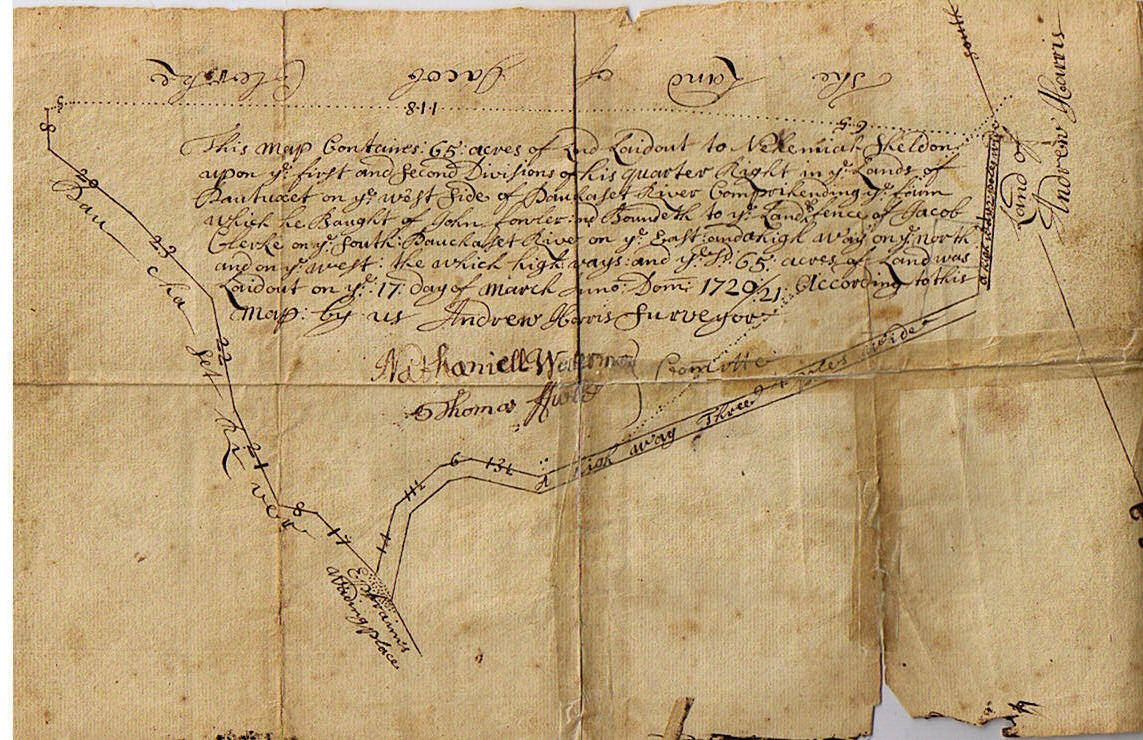 The Land of Jacob Clerke
118
65
8
This map Containes: 65: acres of Land Laidout to Nehemiah Sheldon
upon ye: first and Second Divisions of his quarter Right in ye: Lands of
Pautuxet on ye: west Side of Pauhaset River Comprihending ye: farm
which he Baught of John fowler: and Boundeth to ye: Land fence of Jacob
Clerke on ye: South: Pauchaset River on ye: East: and a high way on ye: North
and on ye: west: the which high ways: and ye: sd: 65: acres of Land was
Laidout on ye: 17: day of March Anno: Dom: 1720/21: According to this
Map: by us Andrew Harris Surveyor
Nathaniell Waterman
Thomas
Comitte
South
Land of
Andrew Harris
Pau cha set River
23
22
21
8
17
14
11½
6
13½
A high way Three poles wide
Ephraims
Wading place